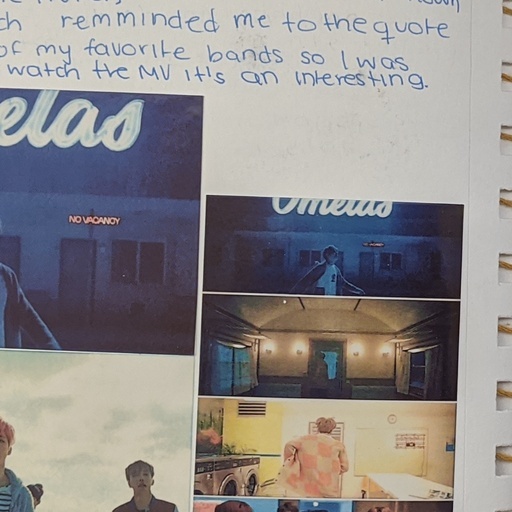 ch remminded me to the quote
of my favorite bands so I was
watch the MV it's an interesting.
elas
NO VACANCY
Omelas